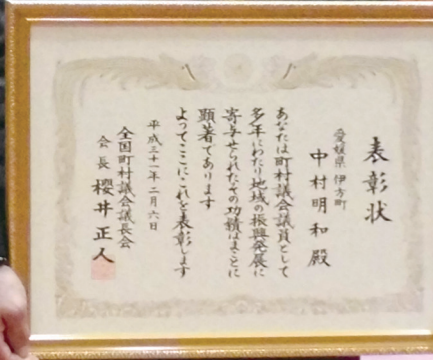 表彰状
愛媛県 伊方町
中村明和殿
あなたは町村議会議員として
多年にわたり地域の振興発展に
寄与せられたその功績はまことに
顕著であります
よってここにこれを表彰します
平成二十一年二月六日
全国町村議会議長会
会長 櫻井正人